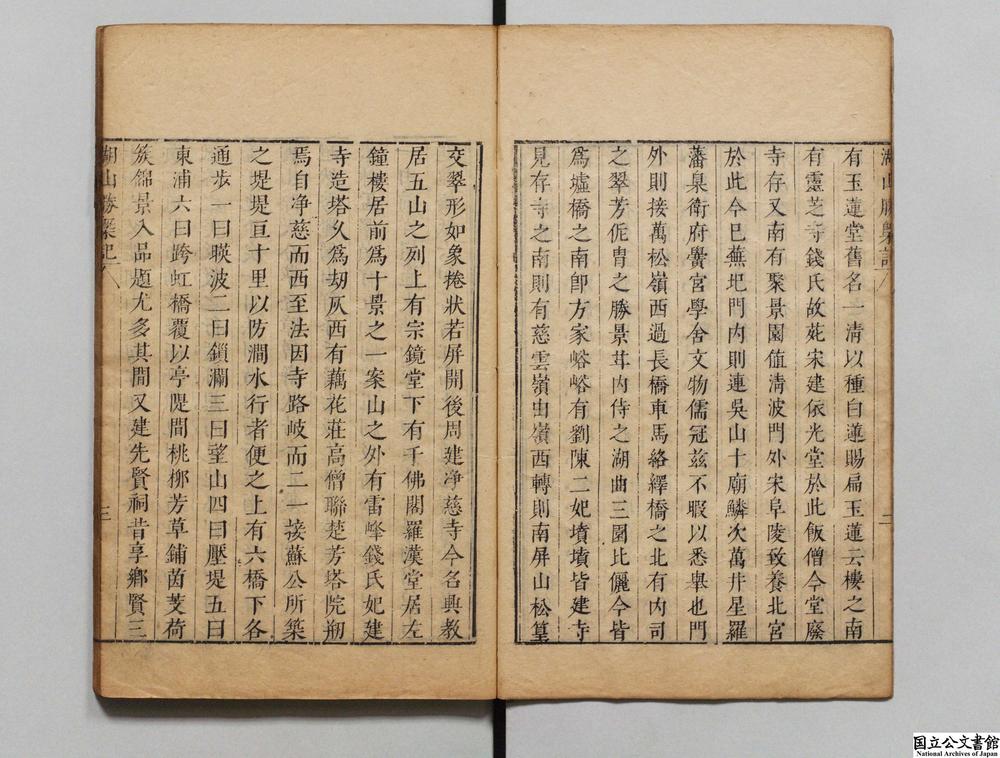 湖山勝槩記
二
有玉蓮堂舊名一清以種白蓮賜扁玉蓮云樓之南
有靈芝寺錢氏故苑宋建依光堂於此飯僧今堂廢
寺存又南有聚景園值清波門外宋阜陵致養北宮
於此今已蕪圯門内則連吳山十廟鱗次萬井星羅
藩臬衛府黌宮學舍文物儒冠茲不暇以悉舉也門
外則接萬松嶺西過長橋車馬絡繹橋之北有内司
之翠芳侂冑之勝景井内侍之湖曲三園比儷今皆
爲墟橋之南卽方家峪峪有劉陳二妃墳墳皆建寺
見存寺之南則有慈雲嶺由嶺西轉則南屏山松篁
交翠形如象捲狀若屏開後周建净慈寺今名興教
居五山之列上有宗鏡堂下有千佛閣羅漢堂居左
鐘樓居前爲十景之一案山之外有雷峰錢氏妃建
寺造塔久爲刼灰西有藕花莊高僧聯楚芳塔院剏
焉自净慈而西至法因寺路岐而二一接蘇公所築
之堤堤亘十里以防澗水行者便之上有六橋下各
通步一曰暎波二曰鎖瀾三曰望山四曰壓堤五曰
東浦六曰跨虹橋覆以亭隄間桃柳芳草鋪茵芰荷
簇錦景入品題尤多其間又建先賢祠昔享鄉賢三
湖山勝槩記
三
国立公文書館
National Archives of Japan